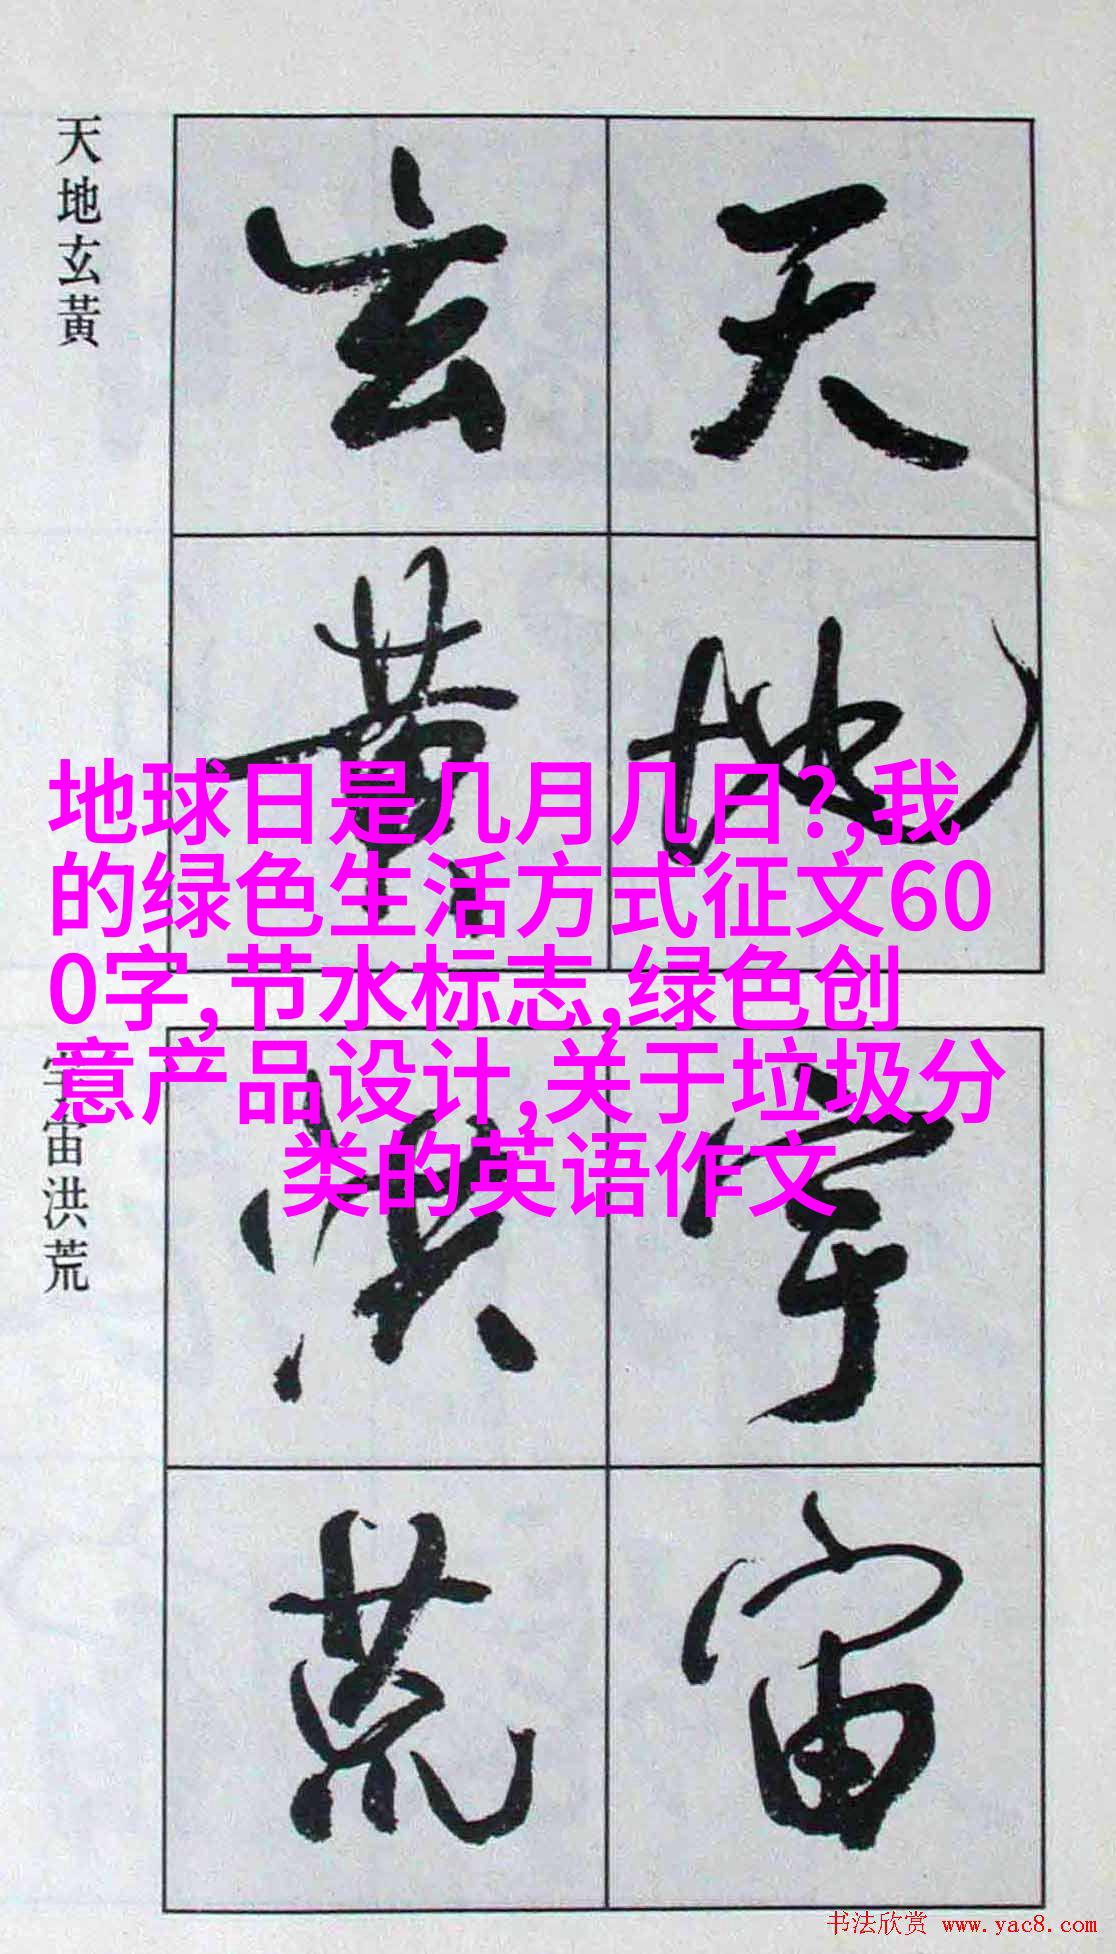 天地玄黃
天地
玄黃
地球日是几月几日?,我
的绿色生活方式征文60
0字,节水标志,绿色创
意产品设计,关于垃圾分
类的英语作文
宇宙洪荒
宇宙
洪荒
书法欣赏 www.yac8.com